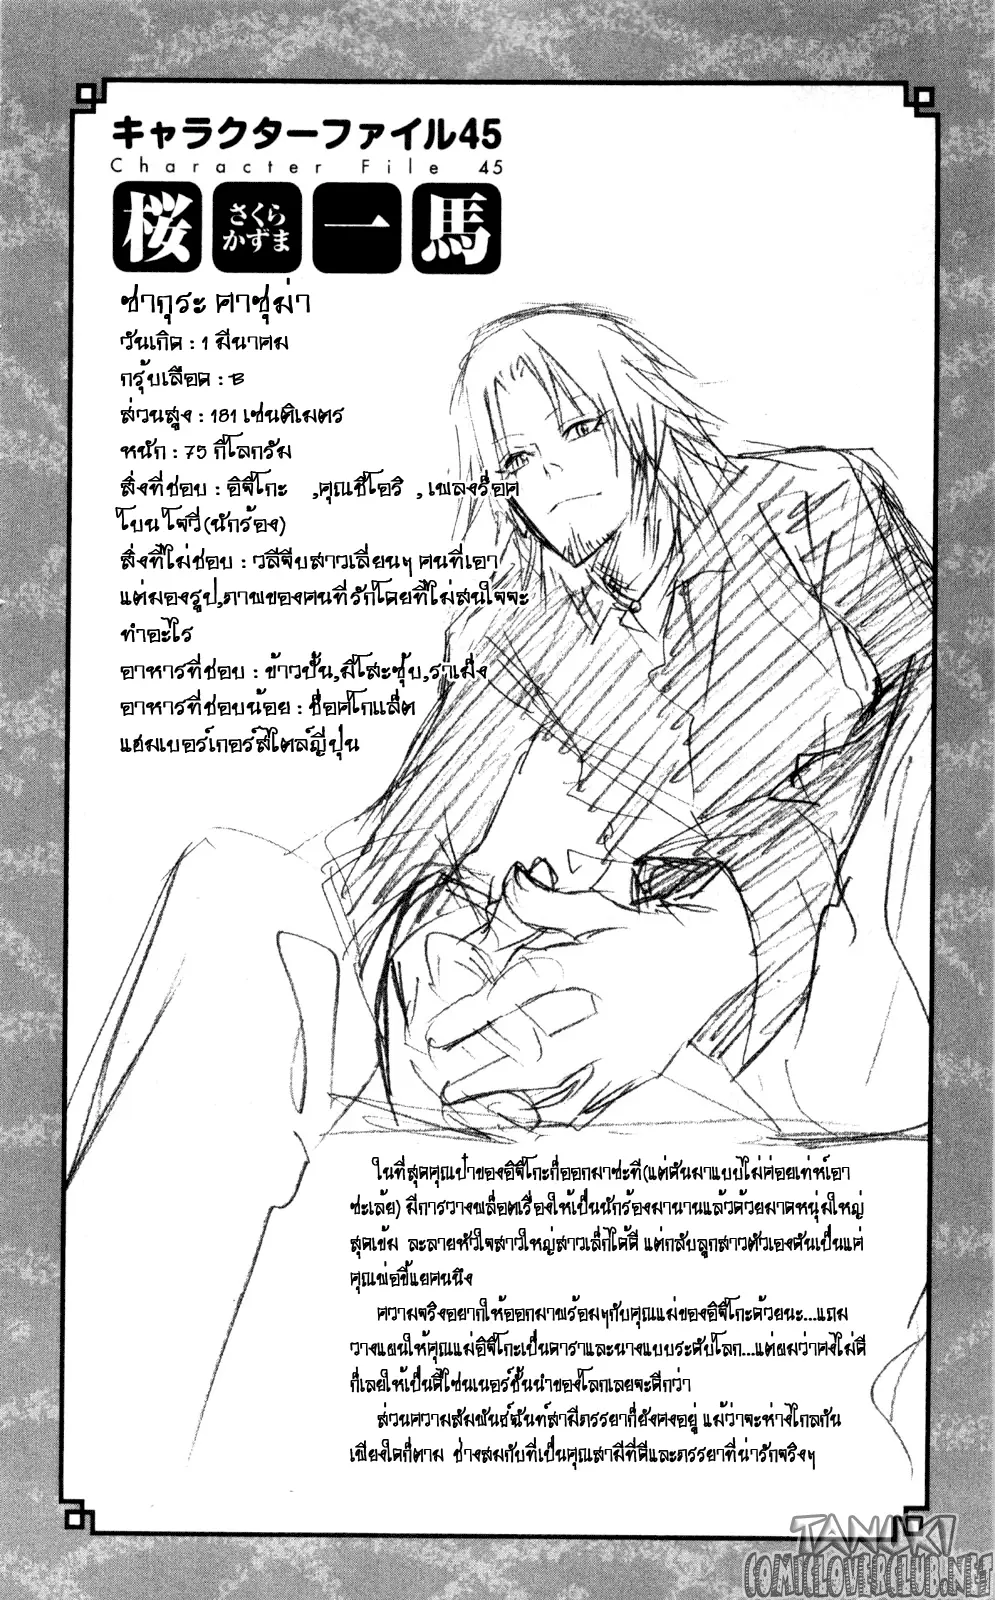 キャラクターファイル45
Character File 45
桜 さくら かずま 一 馬
ซากุระ คาซุม่า
วันเกิด : 1 มีนาคม
กรุ้บเลือด : B
ส่วนสูง : 181 เซนติเมตร
หนัก : 75 กิโลกรัม
สิ่งที่ชอบ : อิจิโกะ ,คุณชิโอริ , เพลงร็อค
โบนโจวี่(นักร้อง)
สิ่งที่ไม่ชอบ : วลีจีบสาวเลี่ยนๆ คนที่เอา
แต่มองรูป,ภาพของคนที่รักโดยที่ไม่สนใจจะ
ทำอะไร
อาหารที่ชอบ : ข้าวปั้น,มิโสะซุป,ราเม็ง
อาหารที่ชอบน้อย : ช็อคโกแล็ต
แฮมเบอร์เกอร์สไตล์ญี่ปุ่น
ในที่สุดคุณป๋าของอิจิโกะก็ออกมาซะที(แต่ดันมาแบบไม่ค่อยเท่ห์เอา
ซะเล้ย) มีการวางพล็อตเรื่องให้เป็นนักร้องมานานแล้วด้วยมาดหนุ่มใหญ่
สุดเข้ม ละลายหัวใจสาวใหญ่สาวเล็กได้ดี แต่กลับลูกสาวตัวเองดันเป็นแค่
คุณพ่อขี้แยคนนึง
ความจริงอยากให้ออกมาพร้อมๆกับคุณแม่ของอิจิโกะด้วยนะ...แถม
วางแผนให้คุณแม่อิจิโกะเป็นดาราและนางแบบระดับโลก...แต่ผมว่าคงไม่ดี
ก็เลยให้เป็นดีไซน์เนอร์ชั้นนำของโลกเลยจะดีกว่า
ส่วนความสัมพันธ์ฉันท์สามีภรรยาก็ยังคงอยู่ แม้ว่าจะห่างไกลกัน
เพียงใดก็ตาม ช่างสมกับที่เป็นคุณสามีที่ดีและภรรยาที่น่ารักจริงๆ
TANUKI
COMICLOVERCLUB.NET